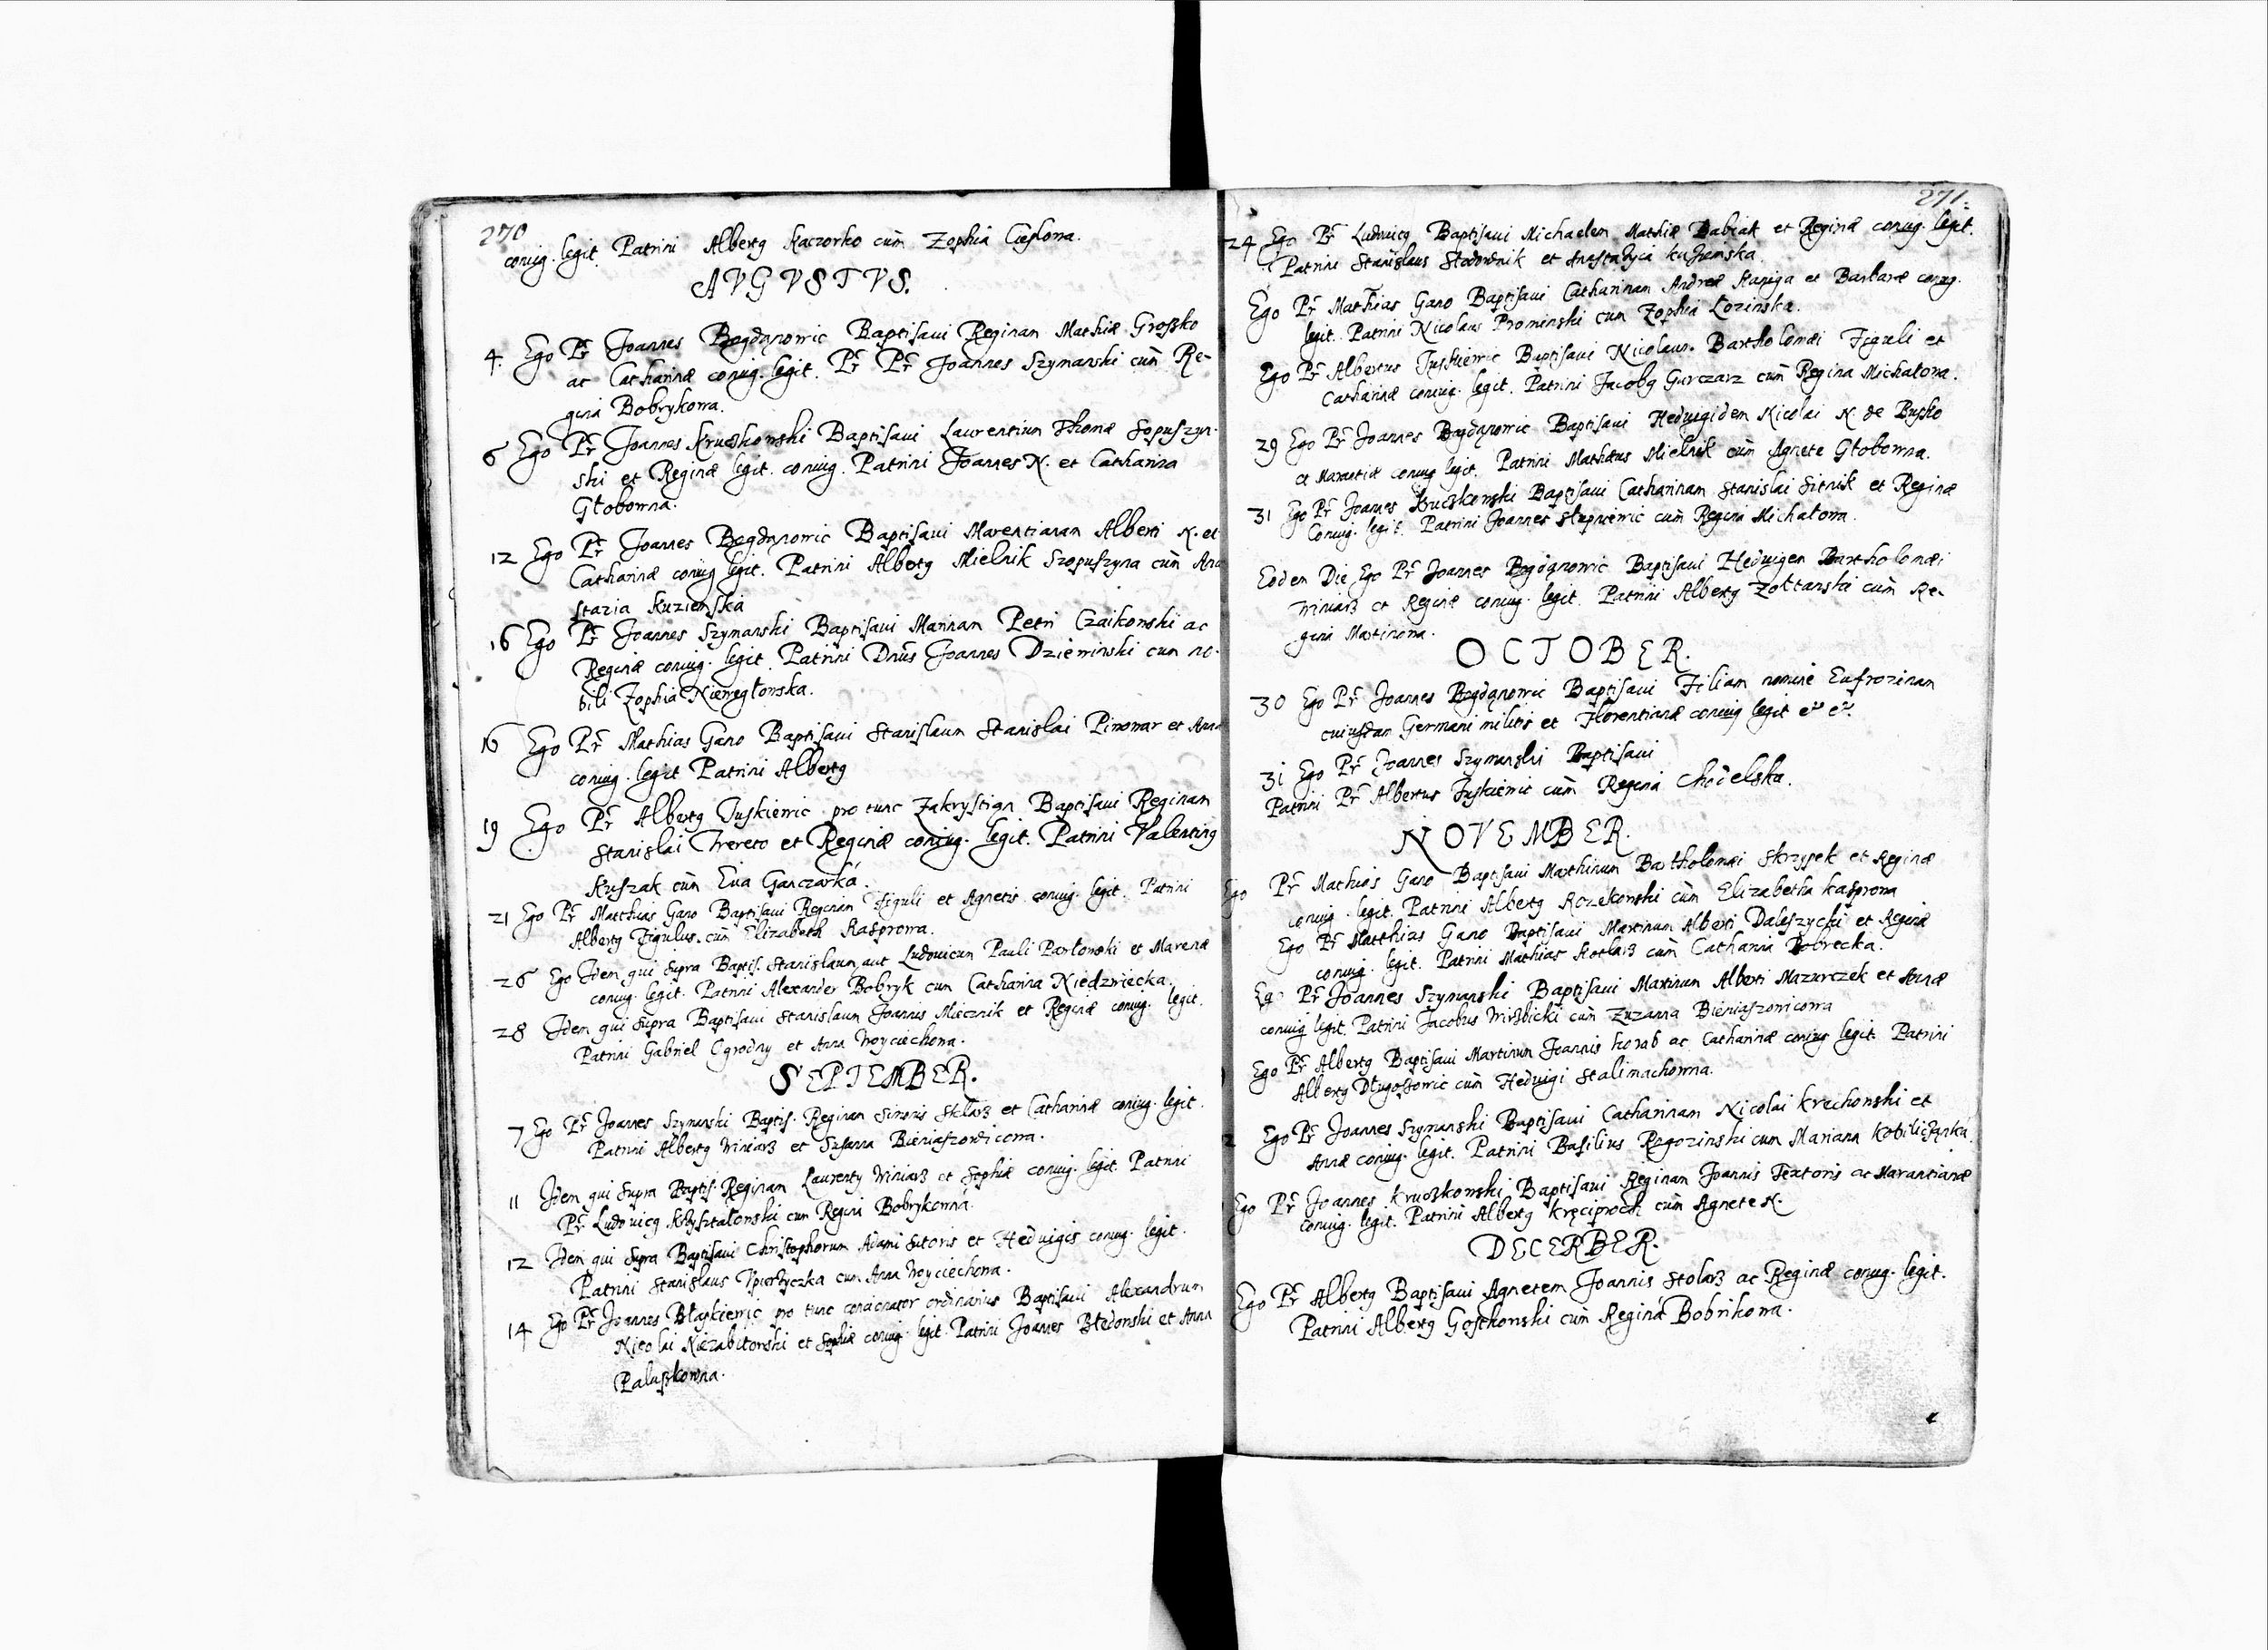 270
coniug. legit. Patrini Alberty Kaczorko cum Zophia Cieslona.
AVGVSTVS.
4. Ego Pr Joannes Bogdąnowic Baptisaui Reginam Mathiæ Groszko
ac Catharinæ coniug. legit. Pr Pr Joannes Szymanski cum Re-
gina Bobrykowa.
6 Ego Pr Joannes Kruszkowski Baptisaui Laurentium Thomæ Sopuszyn-
ski et Reginæ legit. coniug. Patrini Joannes N. et Catharina
Głobowna.
12 Ego Pr Joannes Bogdąnowic Baptisaui Marentianam Alberti N. et
Catharinæ coniug legit. Patrini Alberty Mielnik Szopuszyna cum Ana
stazia Kuzienska
16 Ego Pr Joannes Szymanski Baptisaui Mariнam Petri Czaikonski ac
Reginæ coniug. legit. Patrini Dnus Joannes Dziewinski cum no-
bili Zophia Niewegłowska.
16 Ego Pr Mathias Gano Baptisaui Stanislaum Stanislai Piwowar et Anna
coniug. legit Patrini Alberty
19 Ego Pr Alberty Juskiewic pro tunc Zakrystign Baptisaui Reginam
Stanislai et Reginæ coniug. legit. Patrini Valentiny
Kuszak cum Eua Garczarka.
21 Ego Pr Matthias Gano Baptisaui Reginam Figuli et Agnetis coniug. legit. Patrini
Alberty Figulus cum Elizabeth Kasprowa.
26 Ego Idem qui supra Baptis. Stanislaum aut Ludouicum Pauli Pawłowski et Marenæ
coniug. legit. Patrini Alexander Bobryk cum Catharina Niedzwiecka.
28 Idem qui supra Baptisaui Stanislaum Joannis Miecznik et Reginæ coniug. legit.
Patrini Gabriel Ogrodny et Anna Woyciechowa.
SEPTEMBER.
7 Ego Pr Joannes Szymanski Baptis. Reginam Simonis Sklarz et Catharinæ coniug. legit.
Patrini Alberty Winiarz et Susanna Bieniaszowicowa.
11 Idem qui supra Baptis. Reginam Laurenty Winiarz et Sophiæ coniug. legit. Patrini
Pr. Ludouicy Krzysztalowski cum Regina Bobrykowna.
12 Idem qui supra Baptisaui Christophorum Adami Sutoris et Heduigis coniug. legit.
Patrini Stanislaus cum Anna Woyciechowa.
14 Ego Pr Joannes Błazkiewic pro tunc concionator ordinarius Baptisaui Alexandrum
Nicolai Niezabitowski et Sophiæ coniug. legit. Patrini Joannes Błedowski et Anna
Paluszkowna.
271.
24 Ego Pr Ludouicy Baptisaui Michaelem Mathiæ Babiak et Reginæ coniug. legit.
Patrini Stanislaus Stodołnik et Anastazia Kuzienska.
Ego Pr Mathias Gano Baptisaui Catharinam Andreæ Kaniga et Barbaræ coniug.
legit. Patrini Nicolaus Prominski cum Zophia Łozinska.
Ego Pr Albertus Juskiewic Baptisaui Nicolaum Bartholomæi Figuli et
Catharinæ coniug. legit. Patrini Jacoby Garczarz cum Regina Michałowa.
29 Ego Pr Joannes Bogdąnowic Baptisaui Heduigidem Nicolai N. de Busko
et Marantiæ coniug legit. Patrini Mathæus Mielnik cum Agnete Głobowna.
31 Ego Pr Joannes Kruszkowski Baptisaui Catharinam Stanislai Sitnik et Reginæ
coniug. legit. Patrini Joannes cum Regina Michałowa.
Eodem Die Ego Pr Joannes Bogdąnowic Baptisaui Heduigem Bartholomæi
Winiarz et Reginæ coniug. legit. Patrini Alberty Zołtanski cum Re-
gina Marcinowa.
OCTOBER.
30 Ego Pr Joannes Bogdąnowic Baptisaui Filiam nomine Eufrozinam
cuiusdam Germani militis et Florentianæ coniug legit etc etc.
31 Ego Pr Joannes Szymanski Baptisaui
Patrini Pr Albertus Juskiewic cum Regina Chodelska.
NOVEMBER.
Ego Pr Mathias Gano Baptisaui Marthinum Bartholomæi Skrzypek et Reginæ
coniug. legit. Patrini Alberty Rozekowski cum Elizabetha Kasprowa
Ego Pr Matthias Gano Baptisaui Martinum Alberti Daleszycki et Reginæ
coniug. legit. Patrini Mathias Kotlarz cum Catharina Bobrecka.
Ego Pr Joannes Szymanski Baptisaui Martinum Alberti Mazurczek et Annæ
coniug legit. Patrini Jacobus Wirzbicki cum Zuzanna Bieniaszowicowa
Ego Pr Alberty Baptisaui Martinum Joannis Korab ac Catharinæ coniug legit. Patrini
Alberty Długoszowic cum Heduigi Stalmachowna.
2 Ego Pr Joannes Szymanski Baptisaui Catharinam Nicolai Krechowski et
Annæ coniug. legit. Patrini Basilius Rogozinski cum Mariana Kobiliczanka.
Ego Pr Joannes Kruszkowski Baptisaui Reginam Joannis Textoris ac Marantianæ
coniug. legit. Patrini Alberty Kręciproch cum Agnete N.
DECERBER.
Ego Pr Alberty Baptisaui Agnetem Joannis Stolarz ac Reginæ coniug. legit.
Patrini Alberty Gostkowski cum Regina Bobrikowa.